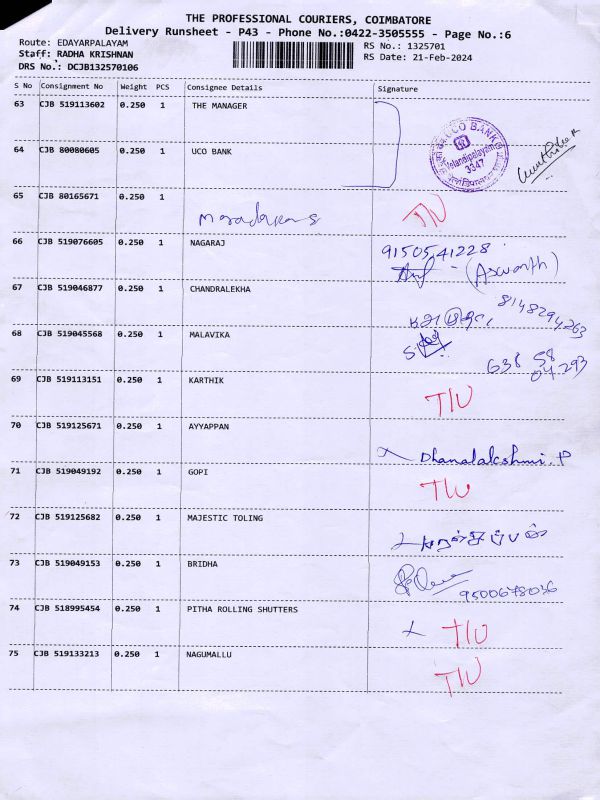 THE PROFESSIONAL COURIERS, COIMBATORE
Delivery Runsheet - P43 - Phone No.:0422-3505555 - Page No.:6
Route: EDAYARPALAYAM
RS No.: 1325701
Staff: RADHA KRISHNAN
RS Date: 21-Feb-2024
DRS No.: DCJB132570106
S No Consignment No Weight PCS Consignee Details Signature
63 CJB 519113602 0.250 1 THE MANAGER
UCO BANK
Velandipalayam
3347
64 CJB 80080605 0.250 1 UCO BANK
65 CJB 80165671 0.250 1
T/U
66 CJB 519076605 0.250 1 NAGARAJ
91505 41228
(Aswanth)
67 CJB 519046877 0.250 1 CHANDRALEKHA
8148294263
68 CJB 519045568 0.250 1 MALAVIKA
638 58
04 293
69 CJB 519113151 0.250 1 KARTHIK
T/U
70 CJB 519125671 0.250 1 AYYAPPAN
Dhanalakshmi. P
71 CJB 519049192 0.250 1 GOPI
T/U
72 CJB 519125682 0.250 1 MAJESTIC TOLING
73 CJB 519049153 0.250 1 BRIDHA
9500678036
74 CJB 518995454 0.250 1 PITHA ROLLING SHUTTERS
T/U
75 CJB 519133213 0.250 1 NAGUMALLU
T/U